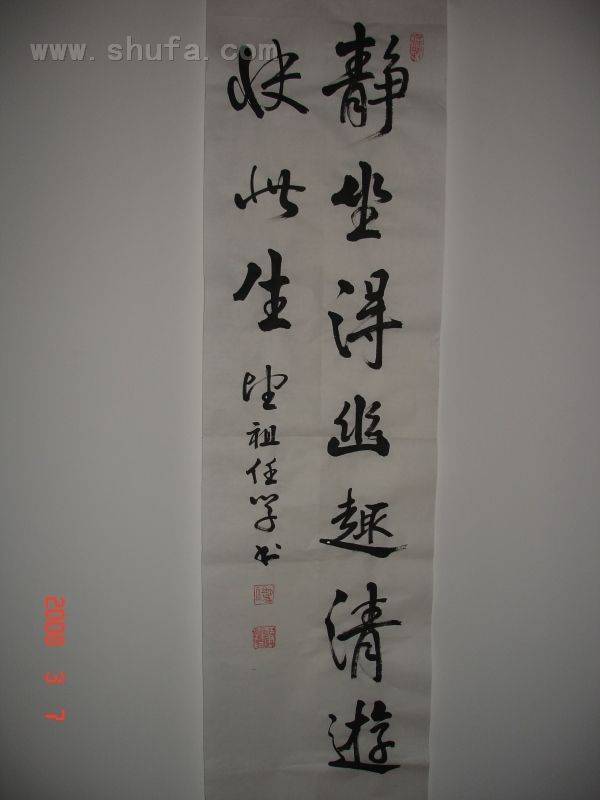 www.shufa.com
静坐得幽趣清遊
快此生
祖任学书
2008 3 7